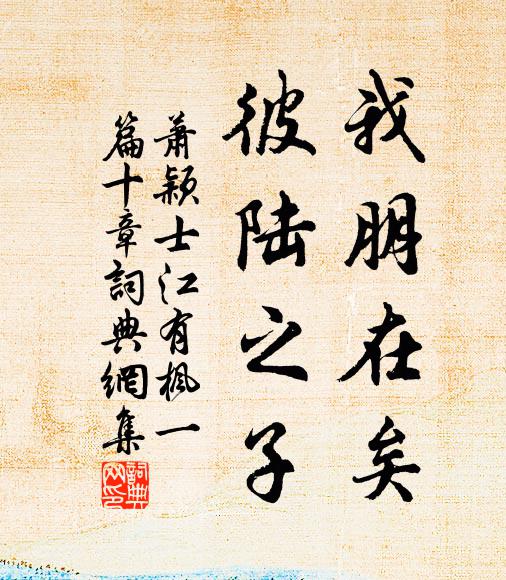 我朋在矣
彼陆之子
萧颖士江有枫一
篇十章詞典網集
詞典网印